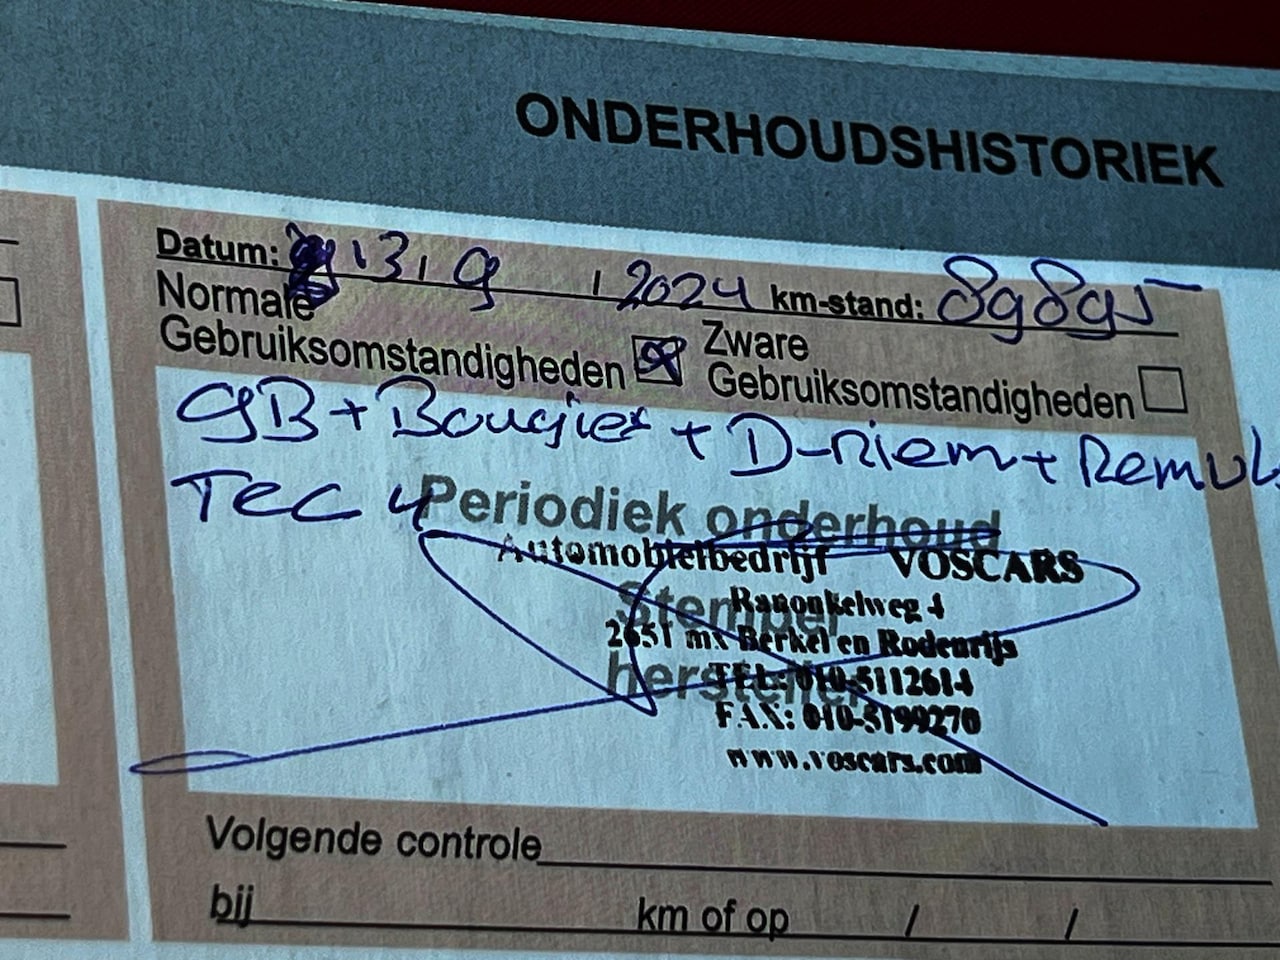 ONDERHOUDSHISTORIEK
Datum: 13 / 9 / 2024 km-stand: 89895
Normale
Gebruiksomstandigheden
Zware
Gebruiksomstandigheden
GB + Bougies + D-riem + Remvl.
TEC 4
Periodiek onderhoud
Automobielbedrijf VOSCARS
Stempel
Ranonkelweg 4
2651 mx Berkel en Rodenrijs
hersteller
TEL: 010-5112614
FAX: 010-5199270
www.voscars.com
Volgende controle
bij km of op / /